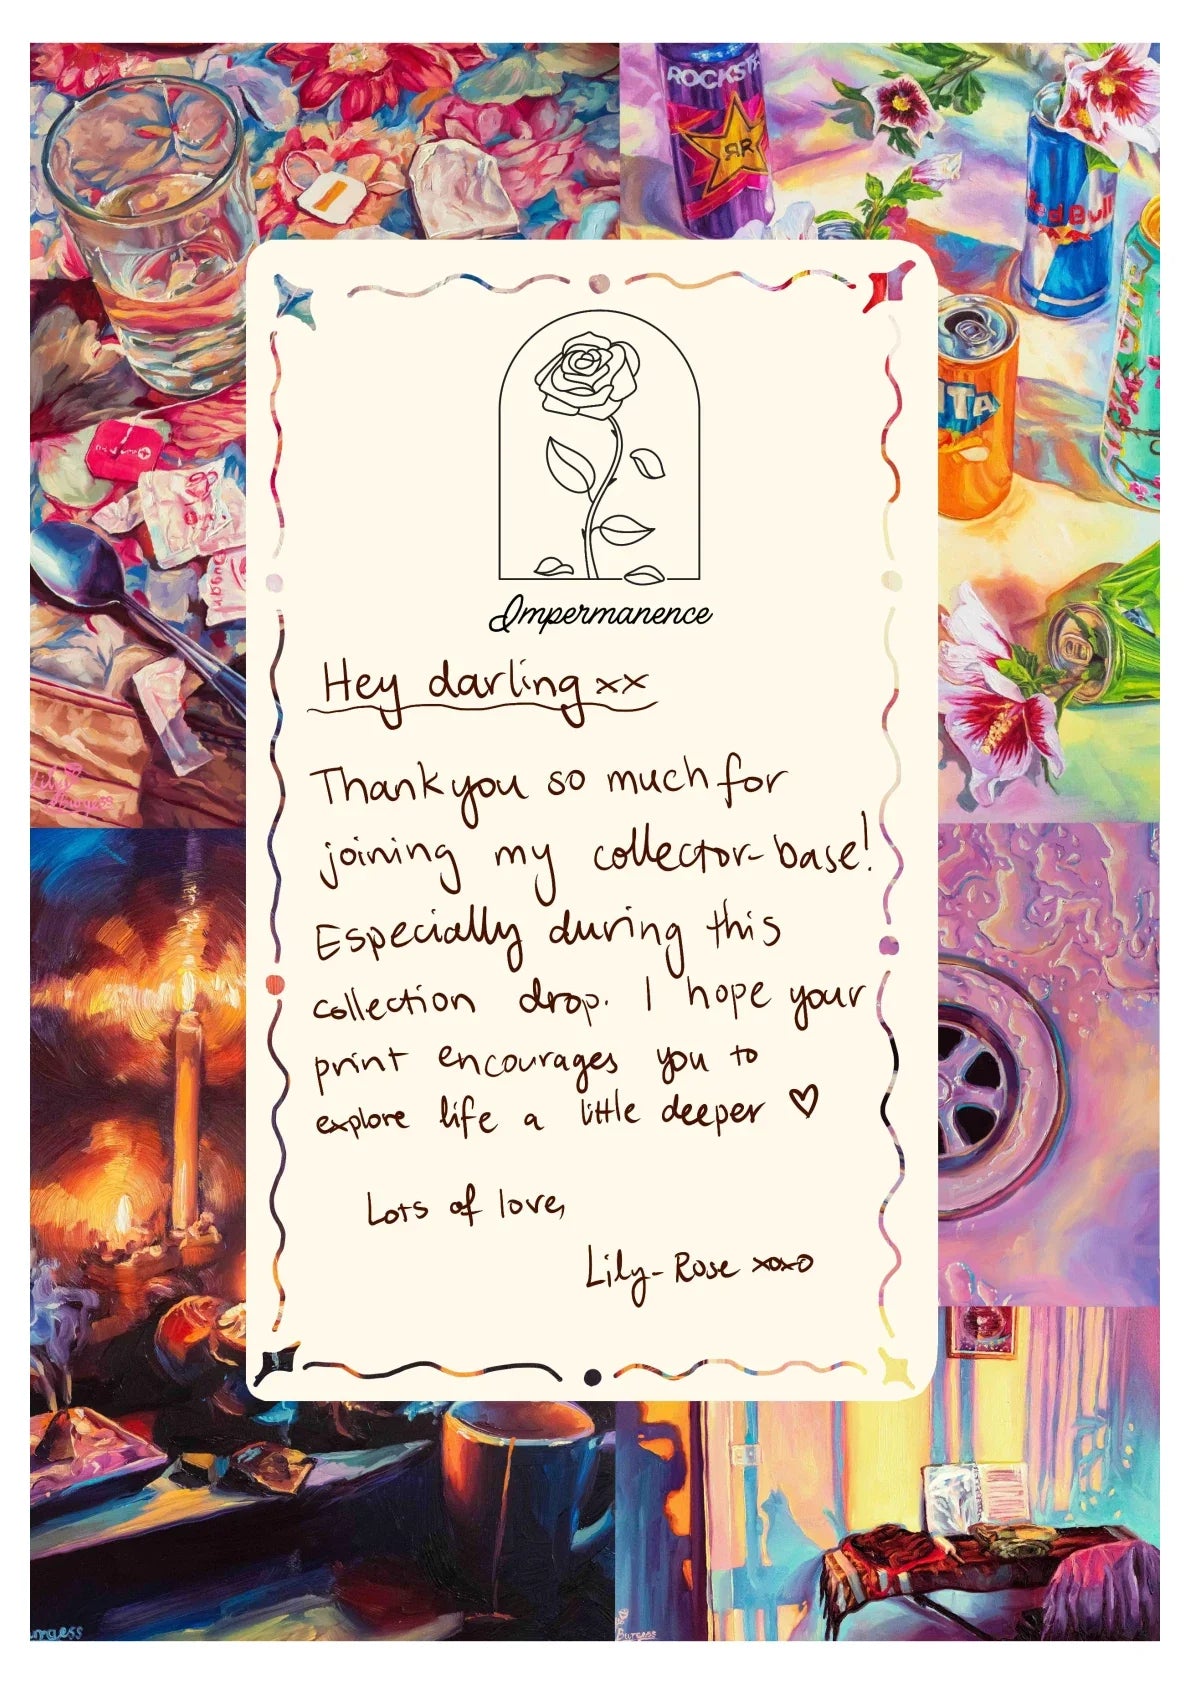 ROCKST
R
Red Bull
NTA
sugar
Lily
Burgess
Impermanence
Hey darling xx
Thank you so much for
joining my collector-base!
Especially during this
collection drop. I hope your
print encourages you to
explore life a little deeper ♡
Lots of love,
Lily-Rose xoxo
urgess
Burgess